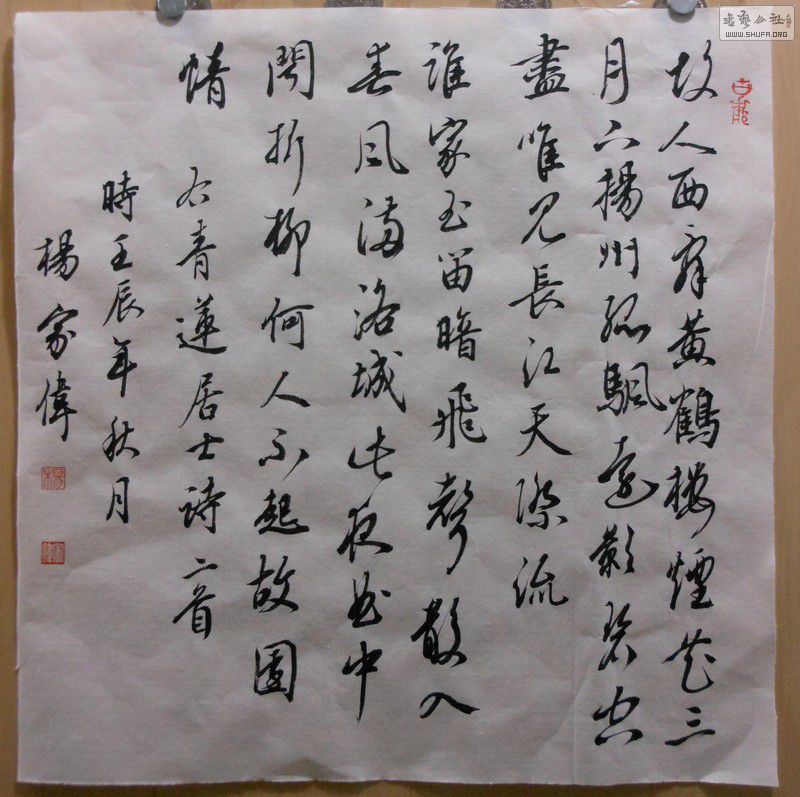 故人西辞黄鶴樓煙花三
月下揚州孤颿遠影碧空
盡唯見長江天際流
誰家玉笛暗飛聲散入
春風滿洛城此夜曲中
聞折柳何人不起故園
情
右青蓮居士詩二首
時壬辰年秋月
楊家偉
書艺公社
WWW.SHUFA.ORG